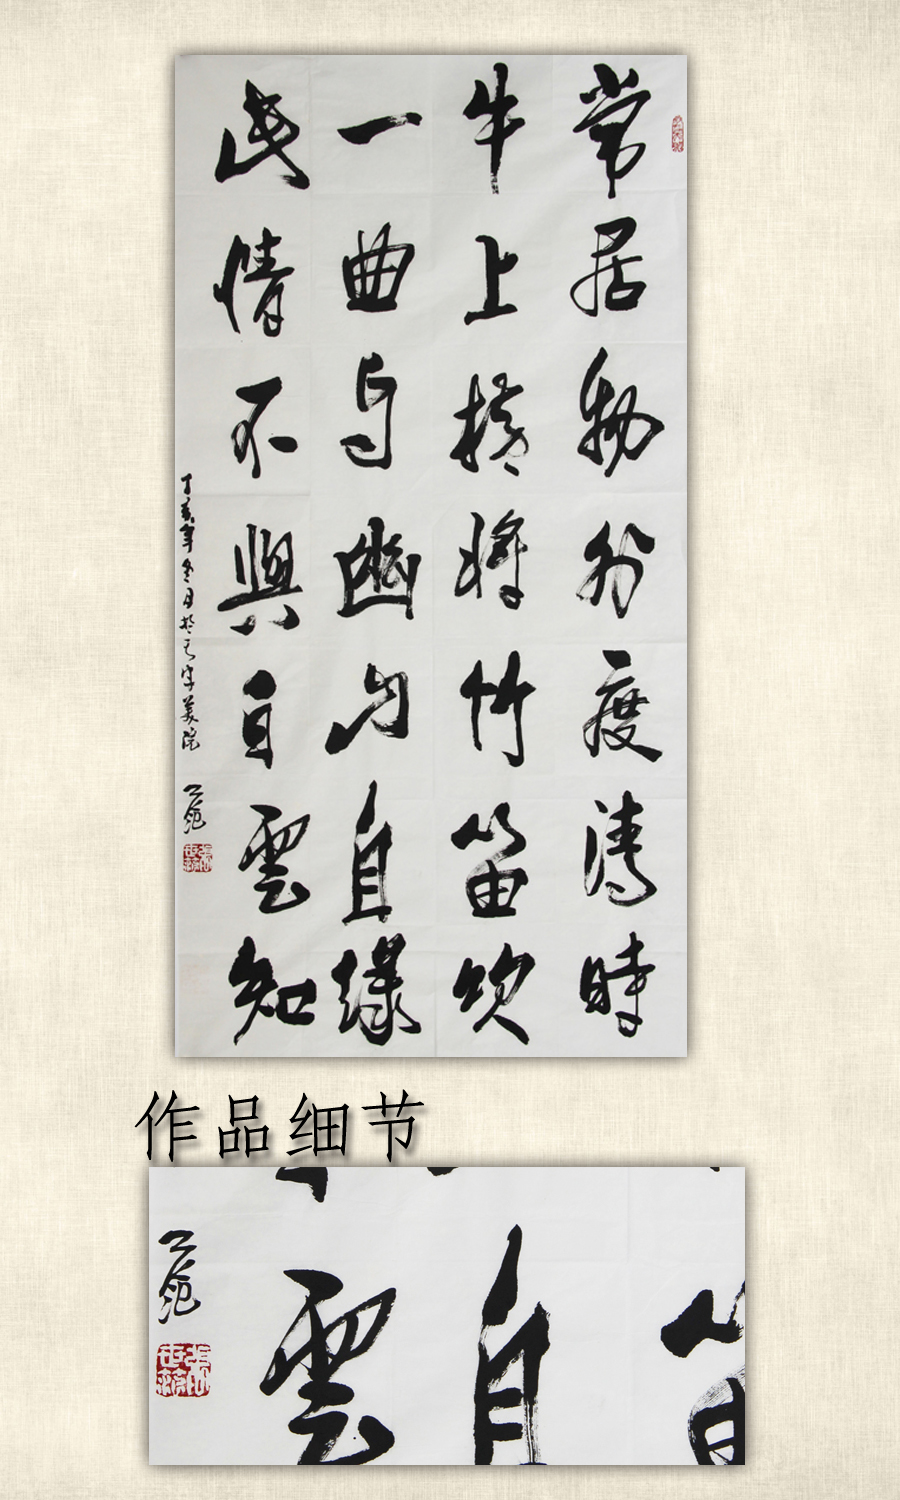 常居物外度清時
牛上横將竹笛吹
一曲与幽山自緑
此情不與白雲知
丁亥年冬月於
美院
作品细节
雲
自